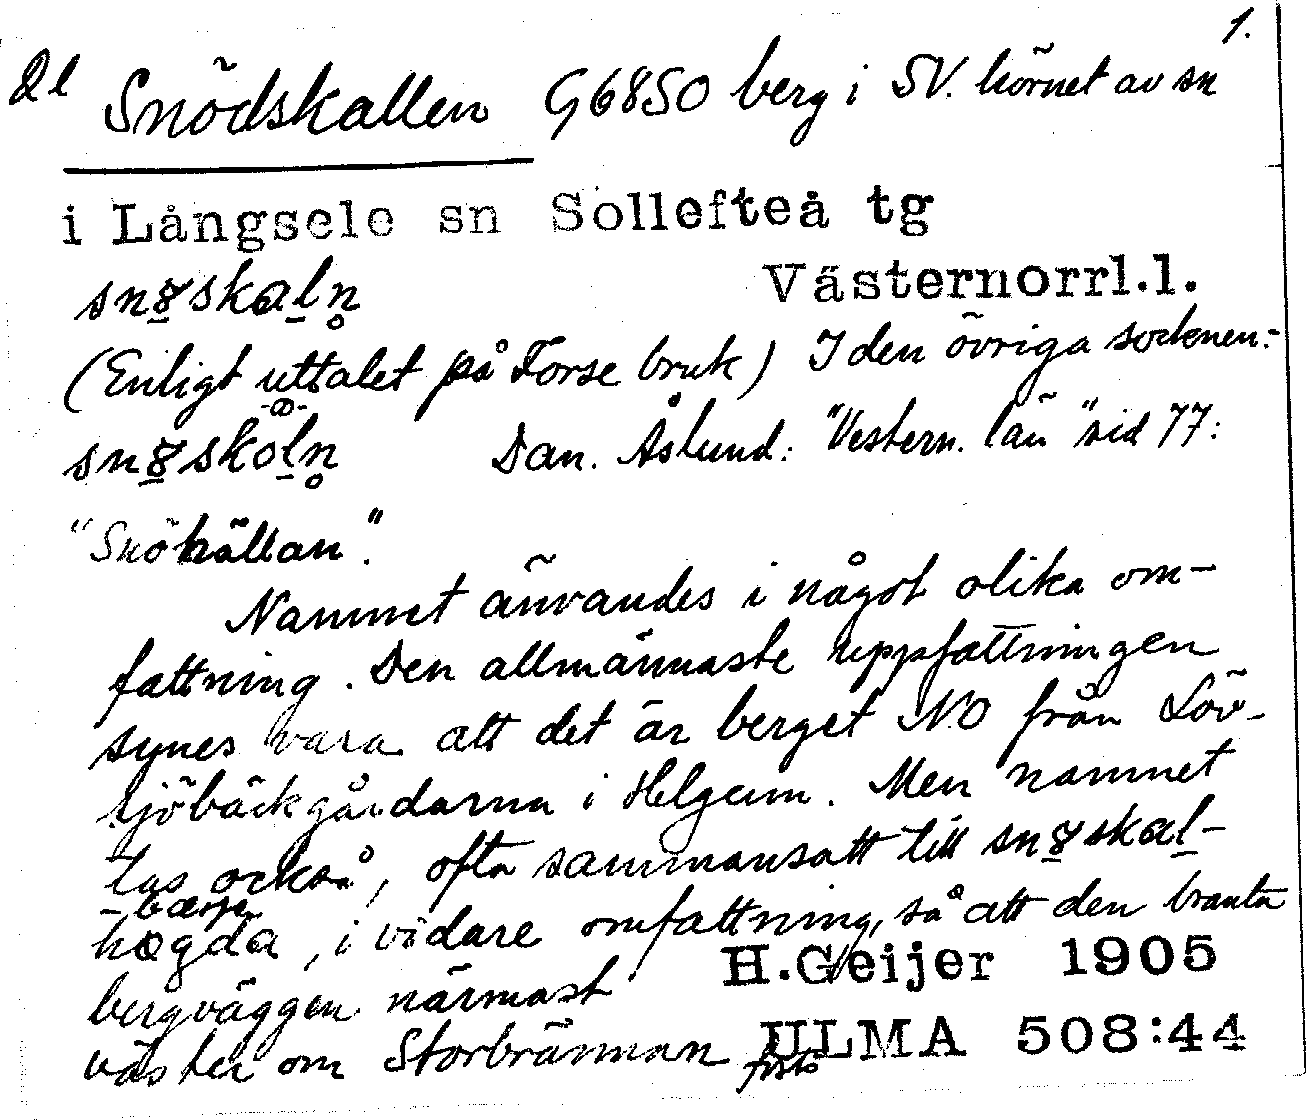 1.
Dl Snödskallen G6850 berg i SV. hörnet av sn
i Långsele sn Sollefteå tg
Västernorrl.l.
snøskaln
(Enligt uttalet på Forse bruk) I den övriga socknen:-
-a-
snøskoln Dan. Åslund: "Vestern. län" sid 77:
"Snöhällan".
Namnet användes i något olika om-
fattning. Den allmännaste uppfattningen
synes vara att det är berget NO från Löv-
sjöbäckgårdarna i Helgum. Men namnet
tas också, ofta sammansatt till snøskal-
-bærje
høgda, i vidare omfattning, så att den branta
bergväggen närmast
väster om Storbrännan
H.Geijer 1905
ULMA 508:44